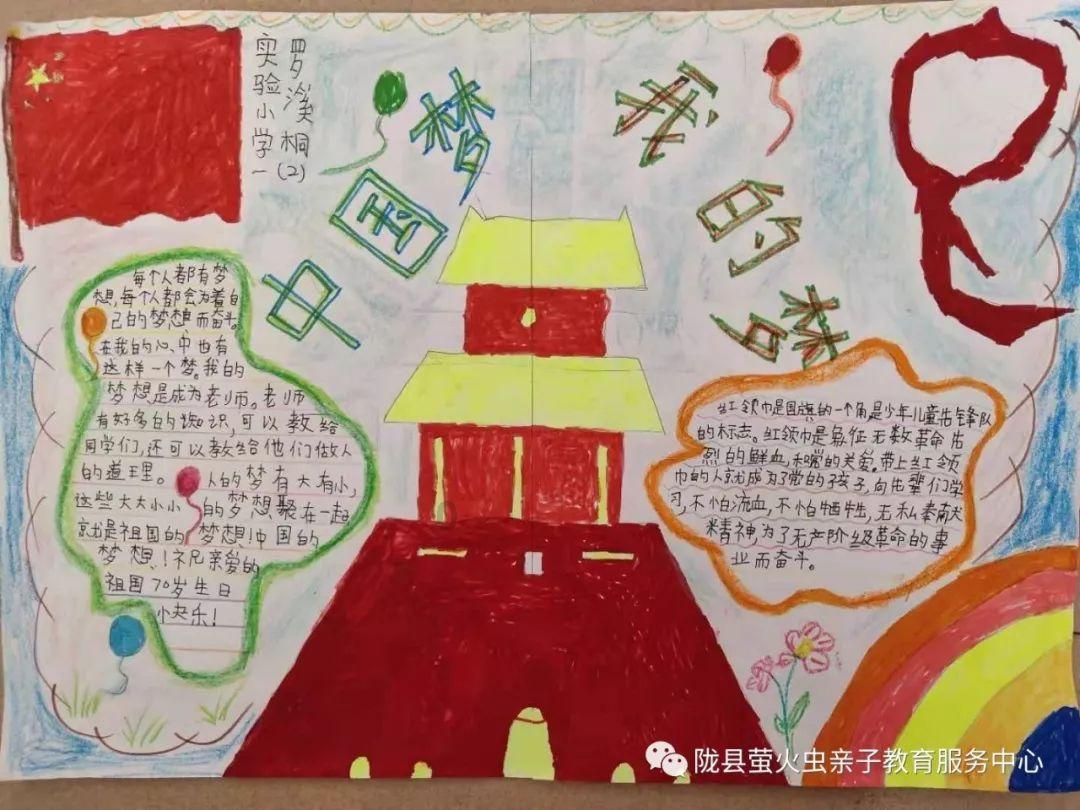 实验小学一(2)
罗溪桐
中国梦
我的梦
每个人都有梦
想,每个人都会为着自
己的梦想而奋斗。
在我的心中也有
这样一个梦。我的
梦想是成为老师。老师
有好多的知识,可以教给
同学们,还可以教给他们做人
的道理。人的梦有大有小,
这些大大小小的梦想聚在一起
就是祖国的梦想!中国的
梦想!祝亲爱的
祖国70岁生日
快乐!
红领巾是国旗的一个角是少年儿童先锋队
的标志。红领巾是象征无数革命先
烈的鲜血和党的关爱。带上红领
巾的人就成为了党的孩子,向先辈们学
习,不怕流血,不怕牺牲,无私奉献
精神,为了无产阶级革命的事
业而奋斗。
陇县萤火虫亲子教育服务中心